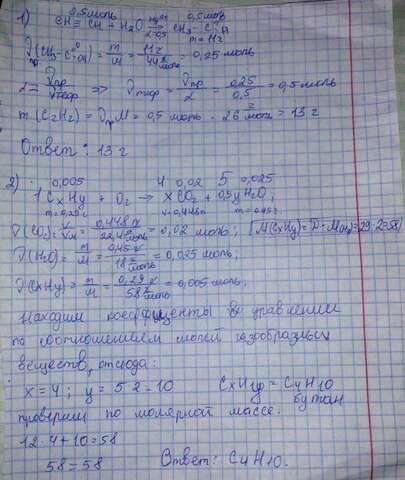 0,5моль 0,5моль
1) CH≡CH + H₂O Hg²⁺ → CH₃-C
m=11г
(CH₃-C = m/M = 11г / 44 г/моль = 0,25 моль
⇒ νтеор = νпр / 2 = 0,25 / 0,5 = 0,5 моль
m (C₂H₂) = ν·M = 0,5 моль · 26 г/моль = 13 г
Ответ: 13 г
0,005 4 0,02 5 0,025
2) 1 CxHy + O₂ → xCO₂ + 0,5yH₂O;
m=0,29г v=0,448л m=0,45г
ν(CO₂) = V/Vм = 0,448 л / 22,4 л/моль = 0,02 моль; [M(CxHy) = D·M(H₂) = 29·2=58)
ν(H₂O) = m/M = 0,45 г / 18 г/моль = 0,025 моль;
ν(CxHy) = m/M = 0,29 г / 58 г/моль = 0,005 моль;
Находим коеффициенты в уравнении
по соотношением молей газообразных
веществ, отсюда:
x=4; y=5·2=10 CxHy = C₄H₁₀
бутан
проверим по молярной массе.
12·4+10=58
58=58 Ответ: C₄H₁₀.